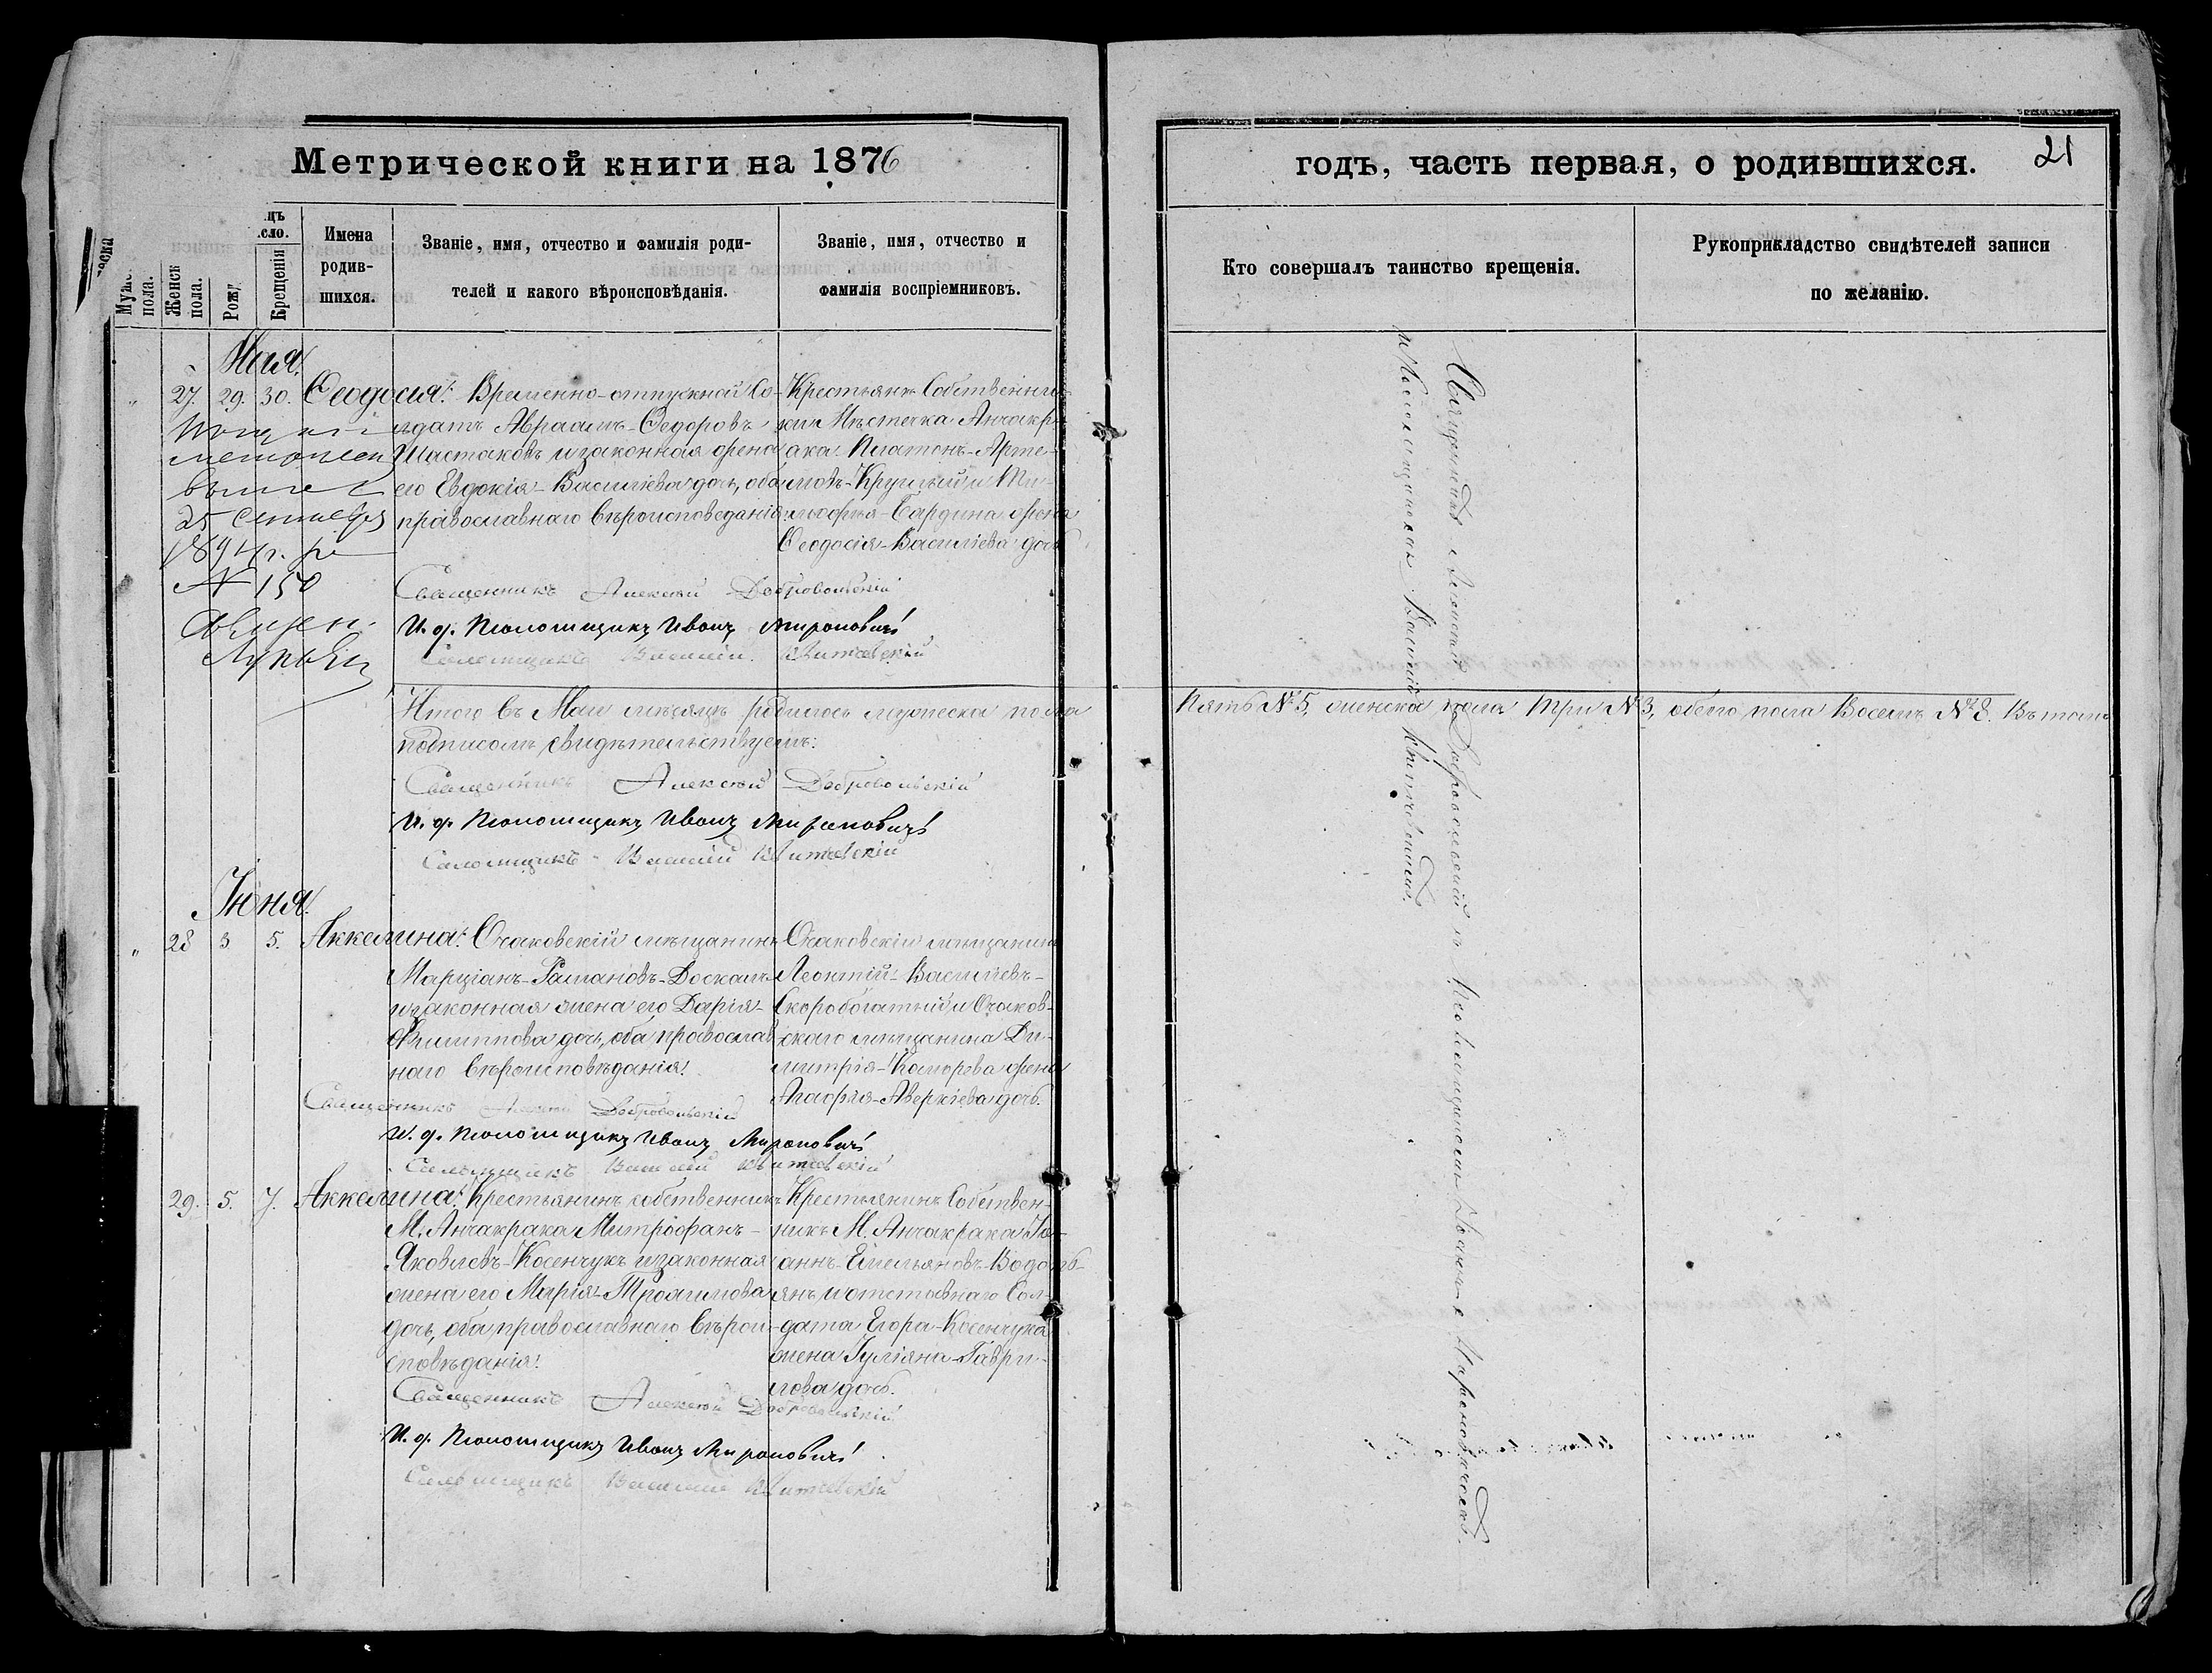 Метрической книги на 1876
годъ, часть первая, о родившихся.
21
Мужс. пола.
Женск пола.
Рожд
Крещенія
Имена
родив-
шихся.
Званіе, имя, отчество и фамилія роди-
телей и какого вѣроисповѣданія.
Званіе, имя, отчество и
фамилія воспріемниковъ.
Кто совершалъ таинство крещенія.
Рукоприкладство свидѣтелей записи
по желанію.
Мая.
27. 29. 30. Ѳеодосія.
Временно-отпускной Со-
лдатъ Авраамъ-Ѳедоровъ
Шастаковъ и законная жена
его Евдокія-Василіева дочь, оба
православнаго вѣроисповеданія.
Крестьянъ Собственни-
ки Мѣстечка Анчакр-
ака: Платонъ-Арте-
мовъ-Круглый и Ти-
мофея-Бардина жена
Ѳеодосія-Василіева дочь
метом
25 Сентября
1894 г.
№ 150
Священ.
Священникъ Алексѣй Добровольскій
И. д. Псаломщикъ Иванъ Мироновичъ
Псаломщикъ Василій Квитковскій
Итого въ Маи мѣсяцѣ родилось мужеска пола
Пять №5, женска пола Три №3, обего пола Восемъ №8. Въ томъ
подписомъ свидѣтельствуемъ:
Священникъ Алексѣй Добровольскій
И. д. Псаломщикъ Иванъ Мироновичъ
Псаломщикъ Василій Квитковскій
Іюня.
28 3 5. Аккелина.
Очаковскій мѣщанинъ
Марціанъ-Романовъ-Доскалъ
и законная жена его Дарія-
Филиппова дочь, оба православ-
наго вѣроисповѣданія.
Очаковскій мѣщанинъ
Леонтій-Василіевъ-
Скоробогатый и Очаков-
скаго мѣщанина Ди-
митрія-Коморева жена
Агафія-Аверкіева дочь.
Священникъ Алексѣй Добровольскій
И. д. Псаломщикъ Иванъ Мироновичъ
Псаломщикъ Василій Квитковскій
29. 5. 7. Аккелина.
Крестьянинъ собственникъ
М. Анчакрака Митрофанъ-
Яковлевъ-Косенчукъ и законная
жена его Марія-Трофимова
дочь, оба православнаго вѣрои-
сповѣданія.
Крестьянинъ Собствен-
никъ М. Анчакрака Іо-
аннъ-Емельяновъ-Водол-
янъ и отставнаго Сол-
дата Егора-Косенчука
жена Іуліяна-Гаври-
лова дочь.
Священникъ Алексѣй Добровольскій
И. д. Псаломщикъ Иванъ Мироновичъ
Псаломщикъ Василій Квитковскій
Священникъ Алексѣй Добровольскій съ Псаломщиками Іоанномъ Мироновичемъ
и Псаломщикомъ Василіемъ Квитковскимъ.